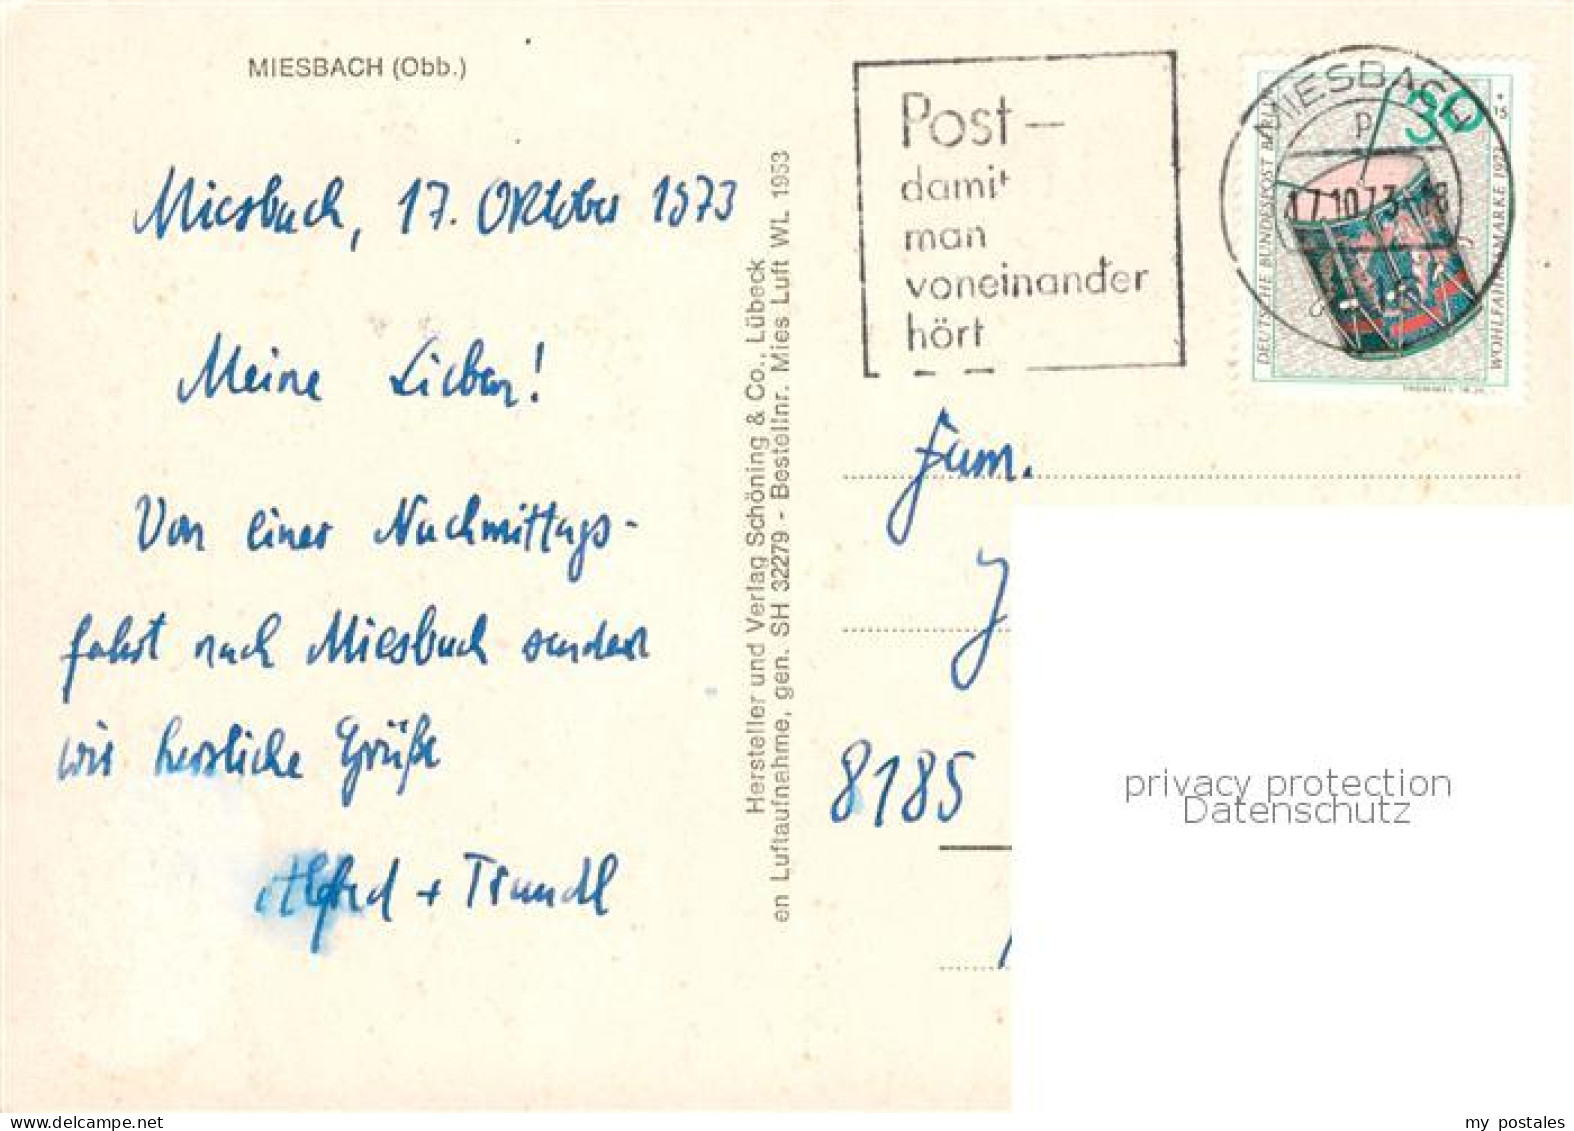 MIESBACH (Obb.)
Miesbach, 17. Oktober 1973
Meine Lieben!
Von einer Nachmittags-
fahrt nach Miesbach senden
wir herzliche Grüße
Alfred + Traudl
Hersteller und Verlag Schöning & Co., Lübeck
en Luftaufnahme, gen. SH 32279 - Bestellnr. Mies Luft WL 1953
Post-
damit
man
voneinander
hört
MIESBACH
p
17.10.73
DEUTSCHE BUNDESPOST BERLIN
30
+
15
WOHLFAHRTSMARKE 1973
Fam.
8185
privacy protection
Datenschutz
delcampe.net
my postales